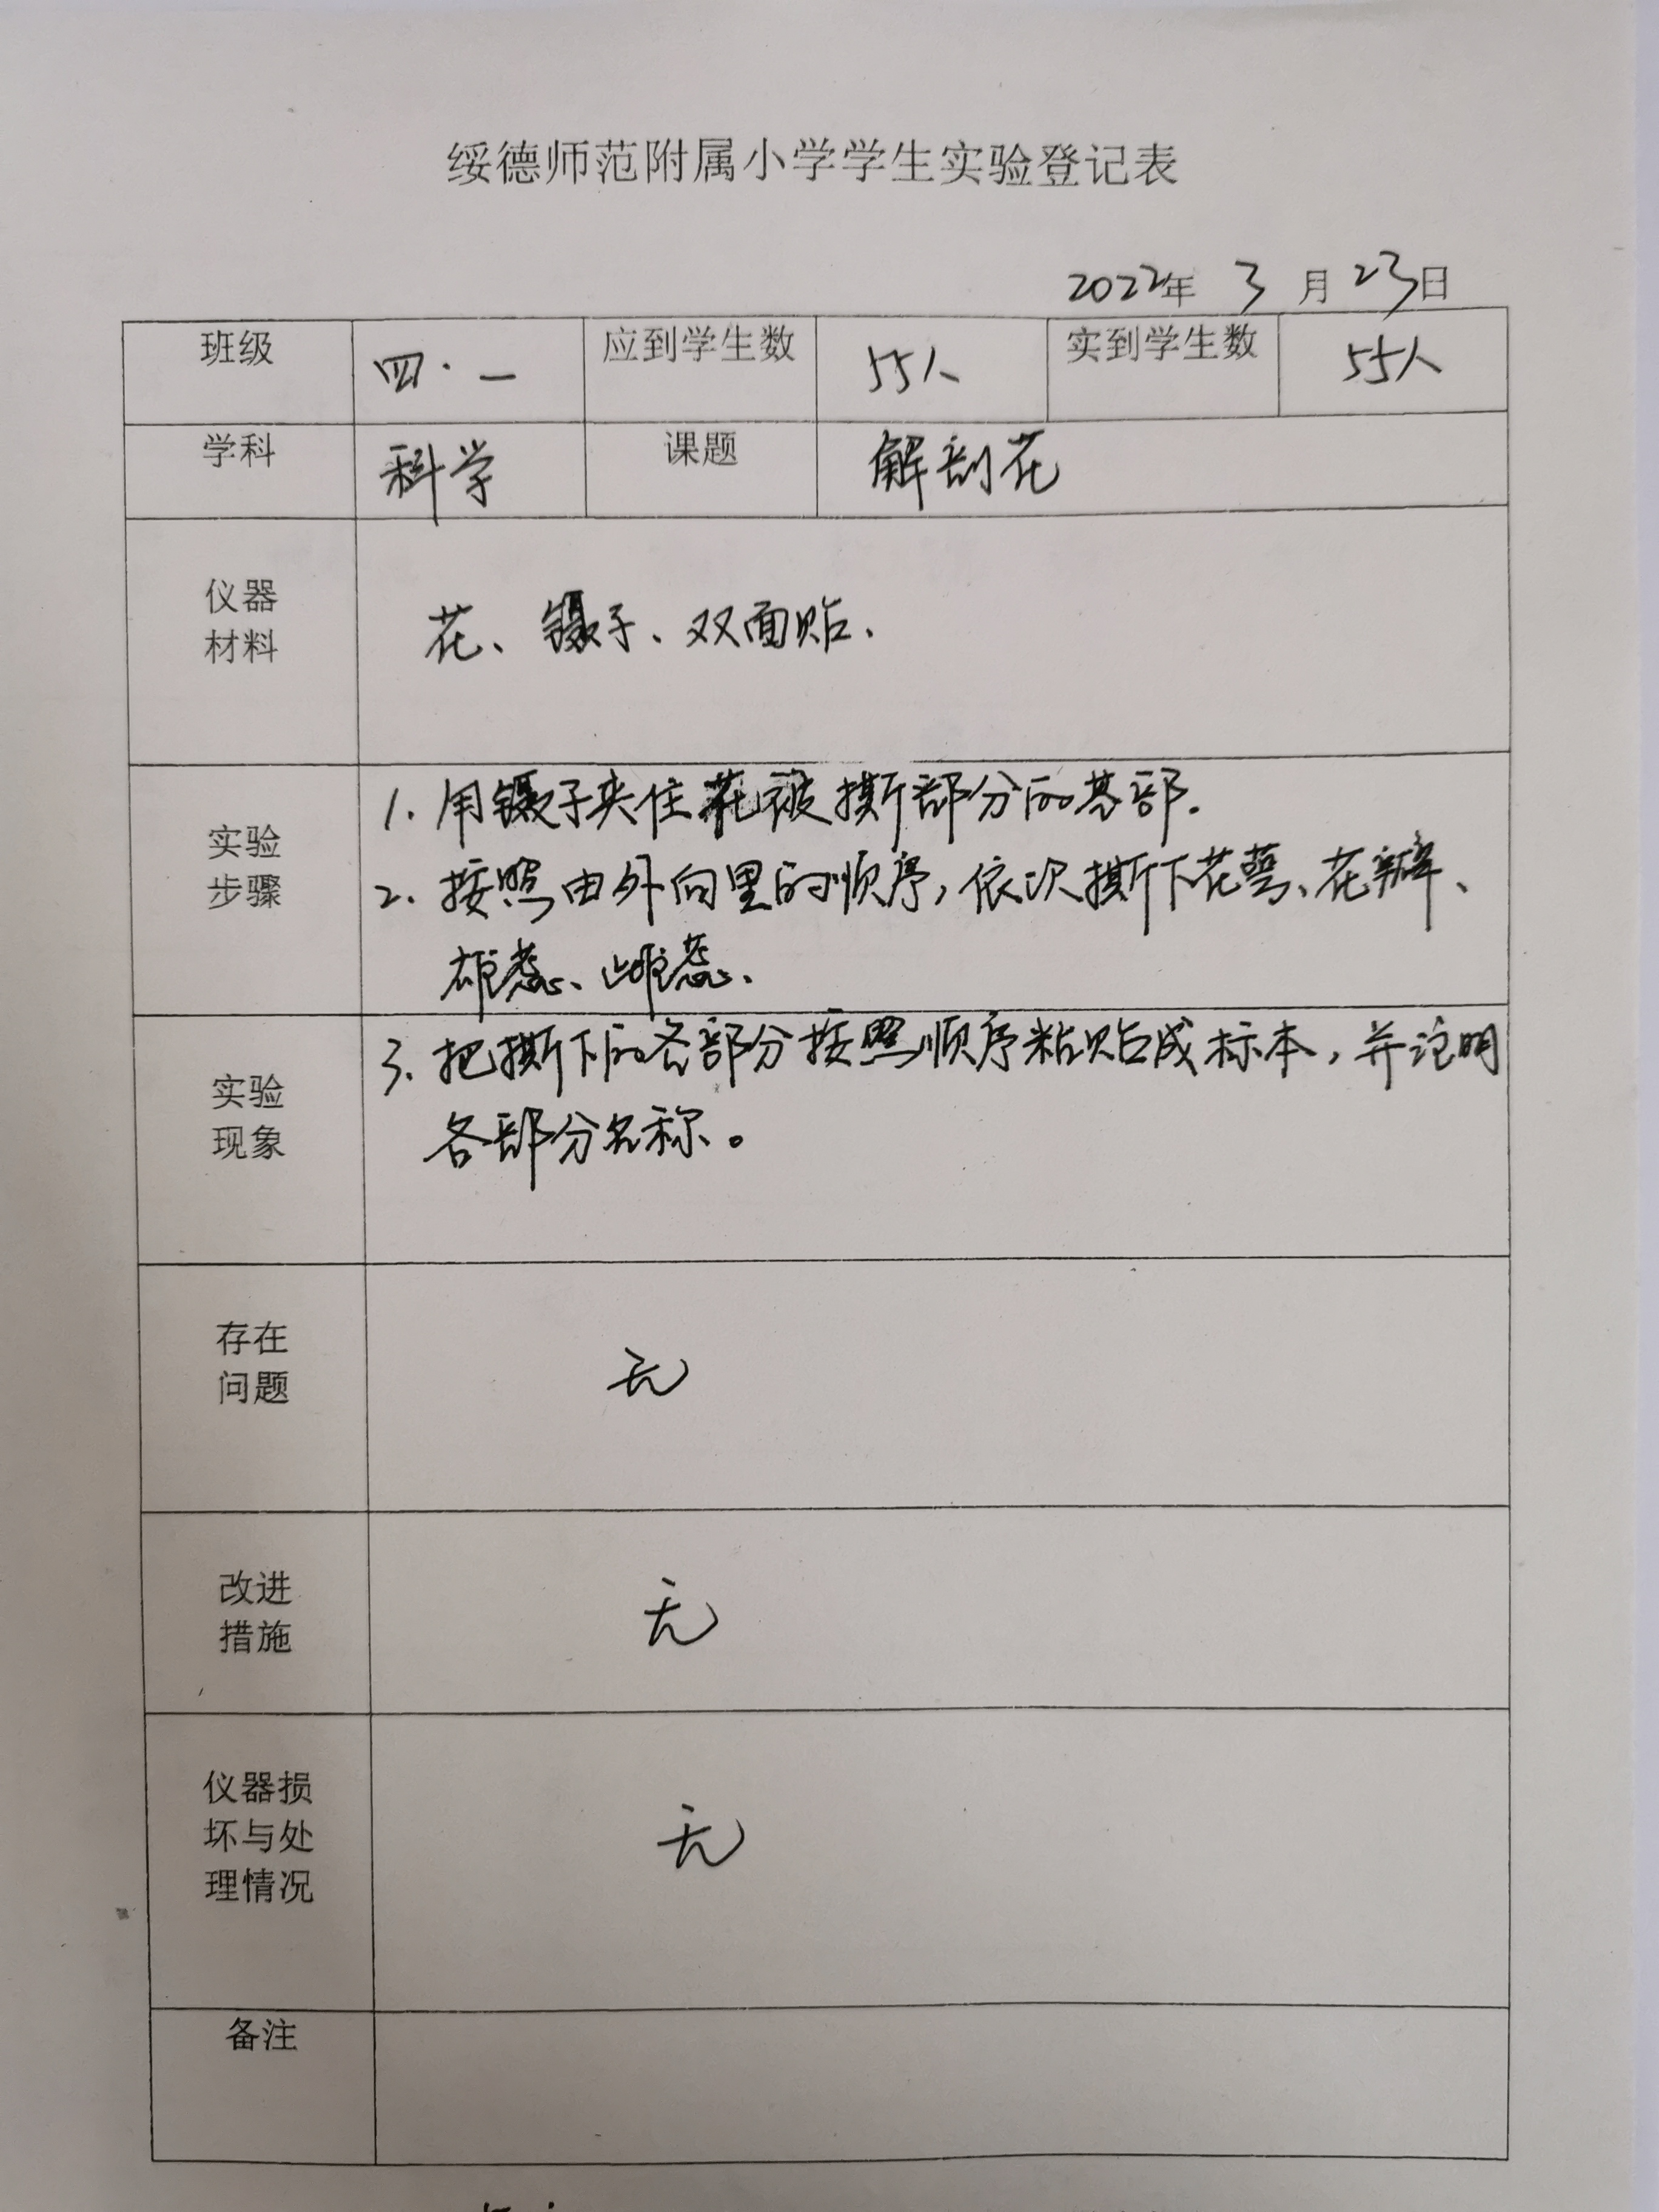 绥德师范附属小学学生实验登记表
2022年 3 月 23日
班级 四·一 应到学生数 55人 实到学生数 55人
学科 科学 课题 解剖花
仪器
材料
花、镊子、双面贴、
实验
步骤
1. 用镊子夹住花被撕部分的基部.
2. 按照由外向里的顺序, 依次撕下花萼、花瓣、
雄蕊、雌蕊、
实验
现象
3. 把撕下的各部分按照顺序粘贴成标本, 并注明
各部分名称。
存在
问题
无
改进
措施
无
仪器损
坏与处
理情况
无
备注